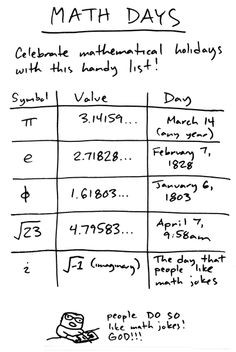 MATH DAYS
Celebrate mathematical holidays
with this handy list!
Symbol Value Day
π 3.14159... March 14
(any year)
e 2.71828... February 7,
1828
ϕ 1.61803... January 6,
1803
√23 4.79583... April 7,
9:58am
i √-1 (imaginary) The day that
people like
math jokes
people DO SO
like math jokes!
GOD!!!